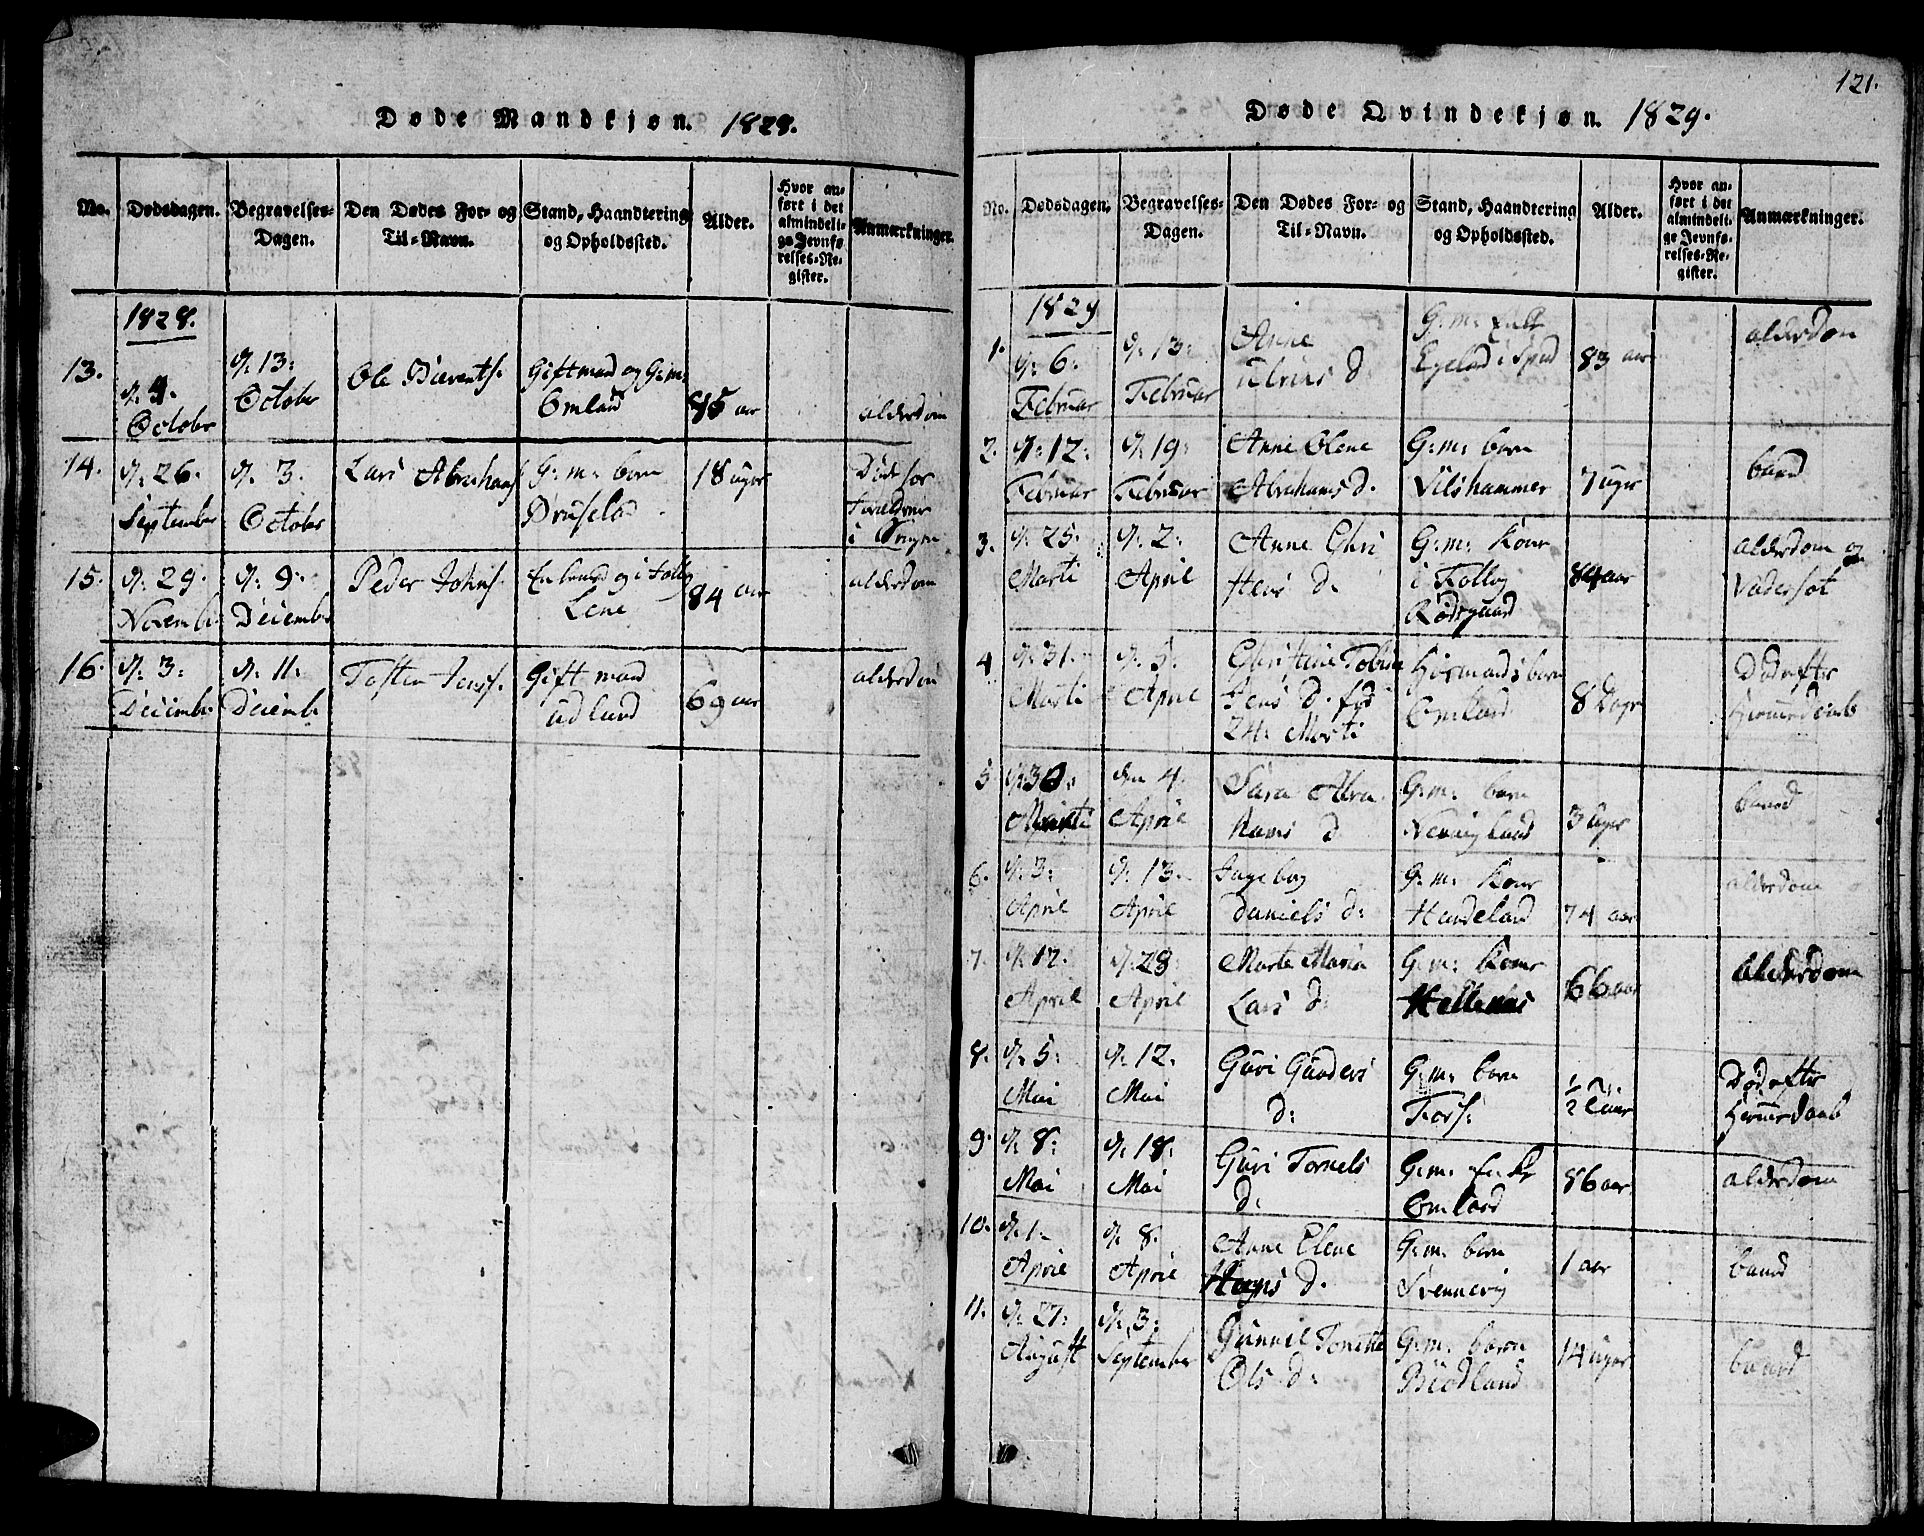 Døde Mandkjøn. 1828.
No. Dødsdagen. Begravelses-Dagen. Den Dødes For- og Til-Navn. Stand, Haandtering og Opholdssted. Alder. Hvor anført i det almindelige Jevnførelses-Register. Anmærkninger.
1828.
13. d. 4. October d. 13: October Ole Giftmand og G:m: Omland 85 aar alderdom
14. d. 26. September d. 3. October Lars Abrahams G: m: barn 18 uger Død for i Sengen
15. d. 29. Novemb d. 9. Decembr Peder Johns. Lene 84 aar alderdom
16. d. 3: Decembr d. 11: Decemb Tosten Jens. Gift mand Udland 69 aar alderdom
121.
Døde Qvindekjøn. 1829.
No. Dødsdagen. Begravelses-Dagen. Den Dødes For- og Til-Navn. Stand, Haandtering og Opholdssted. Alder. Hvor anført i det almindelige Jevnførelses-Register. Anmærkninger.
1829
1. d: 6: Februar d. 13: Februar Anne d. G: m: Enke Egeland i 83 aar alderdom
2. d: 12: Februar d. 19: Februar Anne Olene Abrahams d. G: m: barn Vilshammer 7 uger baand
3. d. 25. Marti d. 2: April Anne Chri stens d. G: m: Kone i Rødsgaard 84 aar alderdom og Vadersot
4 d. 31. Marti d. 5. April Christine Tobine Jens d. fød 24: Marti Huusmands barn Omland 8 Dage Død efter hiemmedaab
5 d. 30: Marti den 4. April Sara Abra hams d G: m: barn 3 uger baand
6. d. 3: April d. 13. April Ingebog Daniels d: G: m: Kone 74 aar alderdom
7. d. 12. April d. 28 April Marte Maria Lars d: G: m: Kone 66 aar alderdom
8. d. 5: Mai d. 12. Mai Guri Gunders d: G: m: barn 1/2 Død efter hiemmedaab
9. d. 8: Mai d. 18: Mai Guri Tarnels d. G: m: Enke Omland 86 aar alderdom
10. d. 1. April d. 8. April Anne Elene d. G: m: barn Svennevig 1 aar baand
11. d. 27: August d. 3: September Gunnil Tonette Ols d: G: m: barn Biodland 14 uger baand